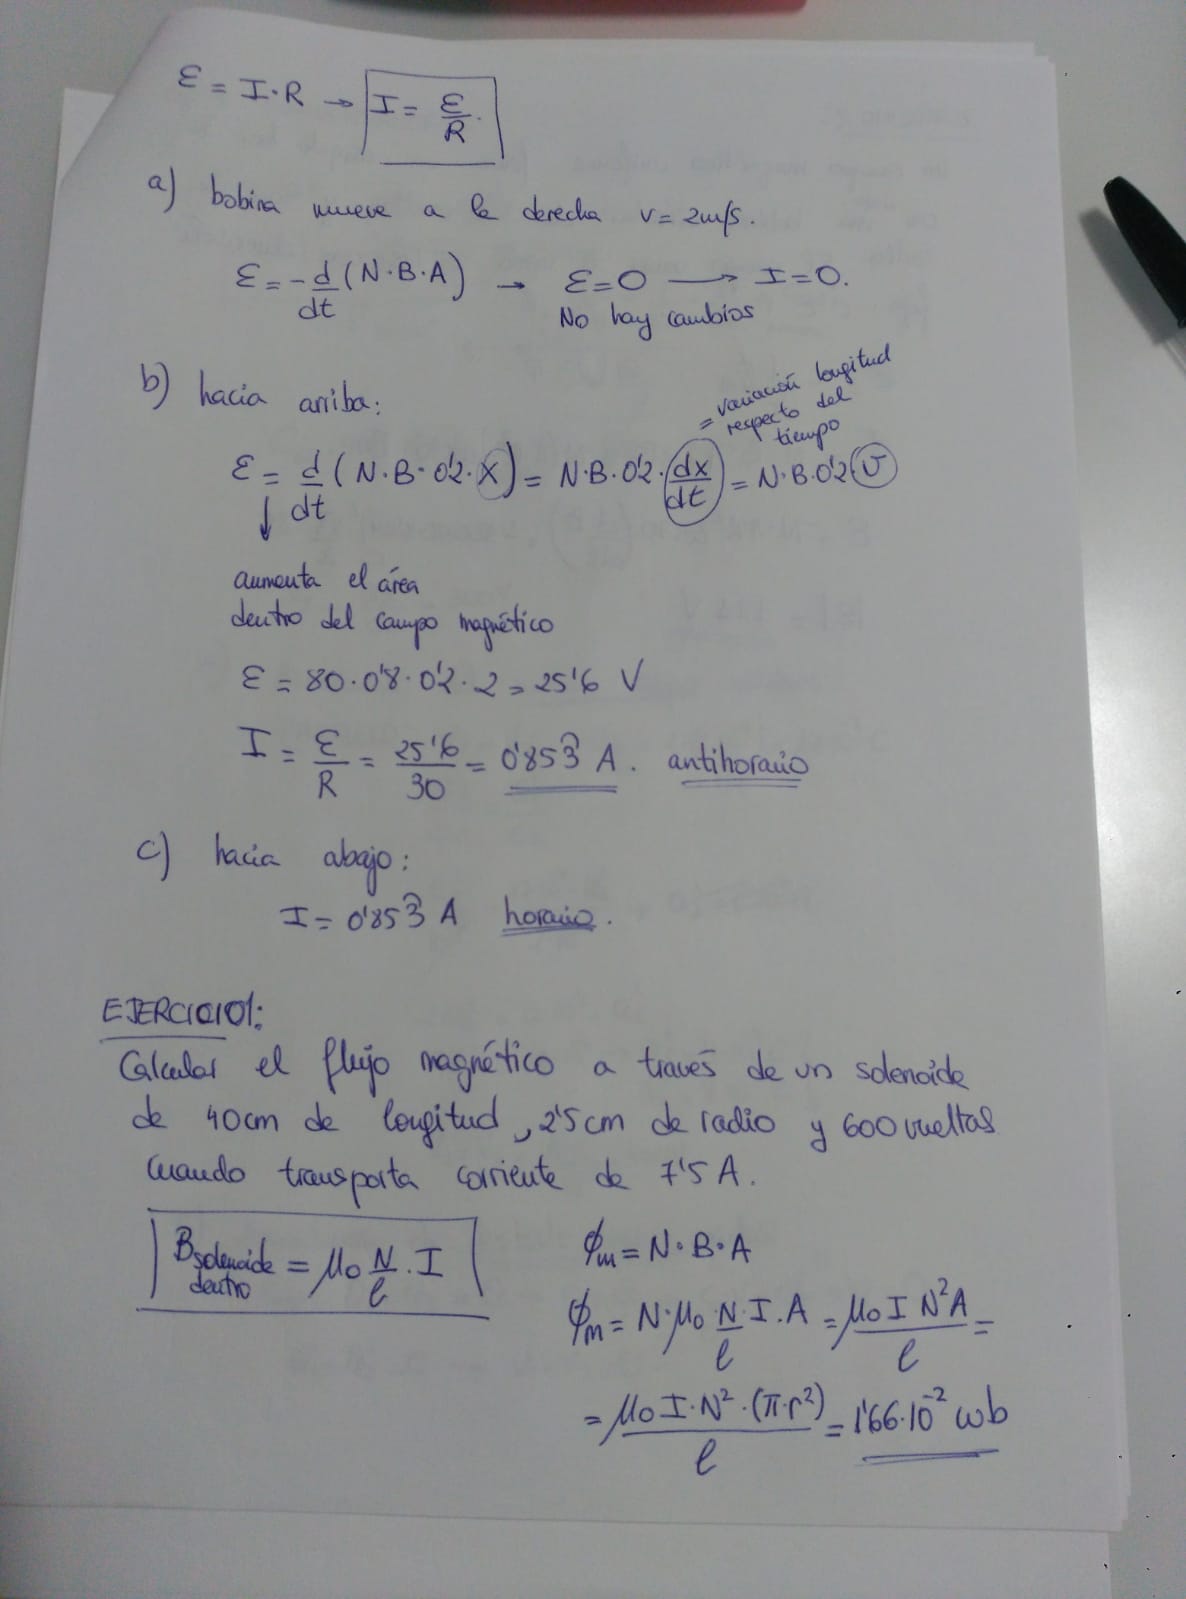 ε = I·R → I = ε/R.
a) bobina mueve a la derecha v = 2m/s.
ε = -d/dt (N·B·A) → ε=0 → I=0.
No hay cambios
b) hacia arriba:
= variación longitud
respecto del
tiempo
ε = d/dt (N·B·0'2·x) = N·B·0'2·dx/dt = N·B·0'2 v
↓
aumenta el área
dentro del campo magnético
ε = 80·0'8·0'2·2 = 25'6 V
I = ε/R = 25'6/30 = 0'853̂ A. antihorario
c) hacia abajo:
I = 0'853̂ A horario.
EJERCICIO1:
Calcular el flujo magnético a través de un solenoide
de 40cm de longitud, 2'5cm de radio y 600 vueltas
cuando transporta corriente de 7'5 A.
B solenoide dentro = μ₀ N/l · I
ϕm = N·B·A
ϕm = N·μ₀ · N/l · I · A = μ₀ I N² A / l =
= μ₀ I·N²·(π·r²) / l = 1'66·10⁻² wb